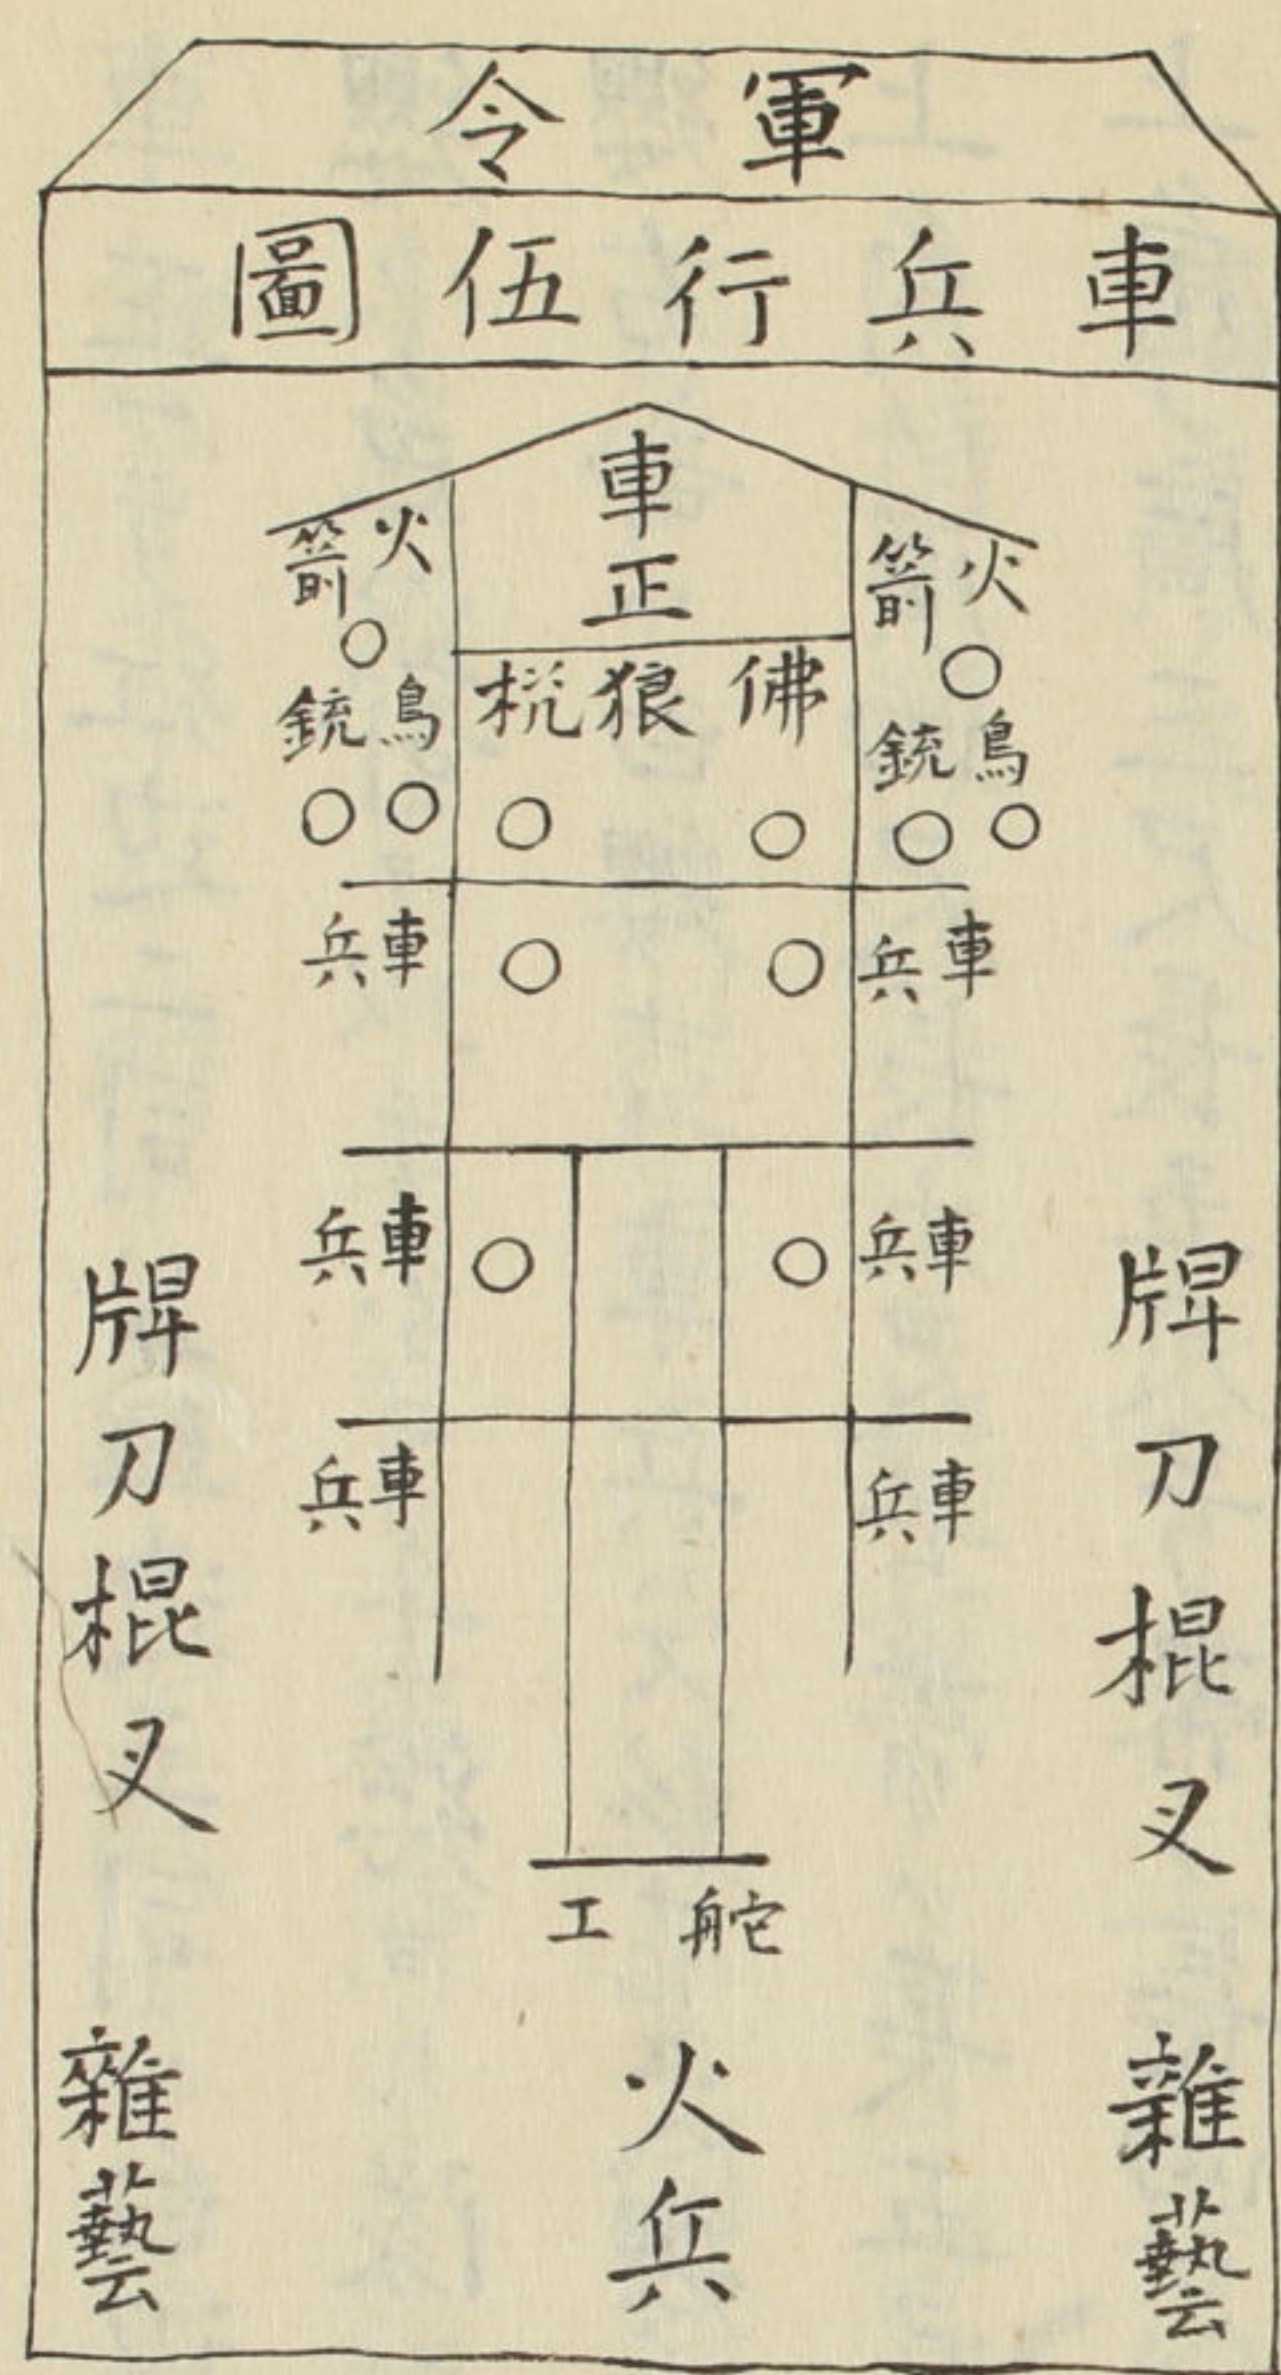 軍令
車兵行伍圖
車正
火箭
火箭
佛狼桄
鳥銃
鳥銃
車兵
車兵
車兵
車兵
車兵
車兵
牌刀棍叉
牌刀棍叉
舵工
雜藝
火兵
雜藝